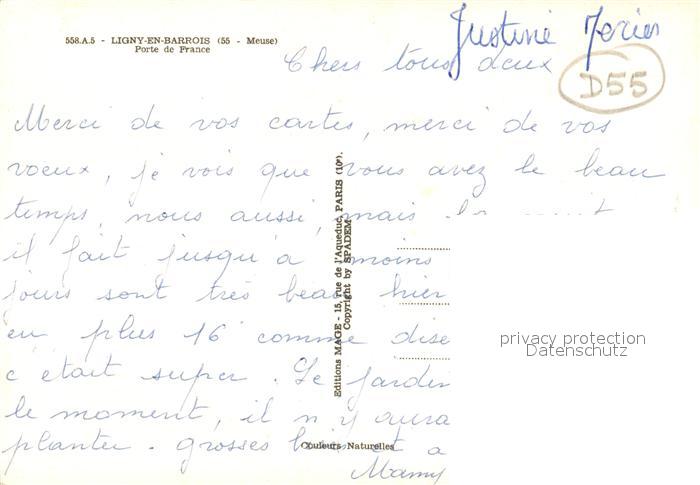 558.A.5 - LIGNY-EN-BARROIS (55 - Meuse)
Porte de France
Justine
D55
Chers tous deux
Merci de vos cartes, merci de vos
voeux, je vois que vous avez le beau
temps, nous aussi, mais
il fait jusqu'à moins
jours sont très beaux hier
eu plus 16° comme dise
c'était super. Le jardin
le moment, il n'y aura
planter - grosses bises et a
Mamy
Editions MAGE - 15, rue de l'Aqueduc, PARIS (10e).
Copyright by SPADEM
Couleurs Naturelles
privacy protection
Datenschutz